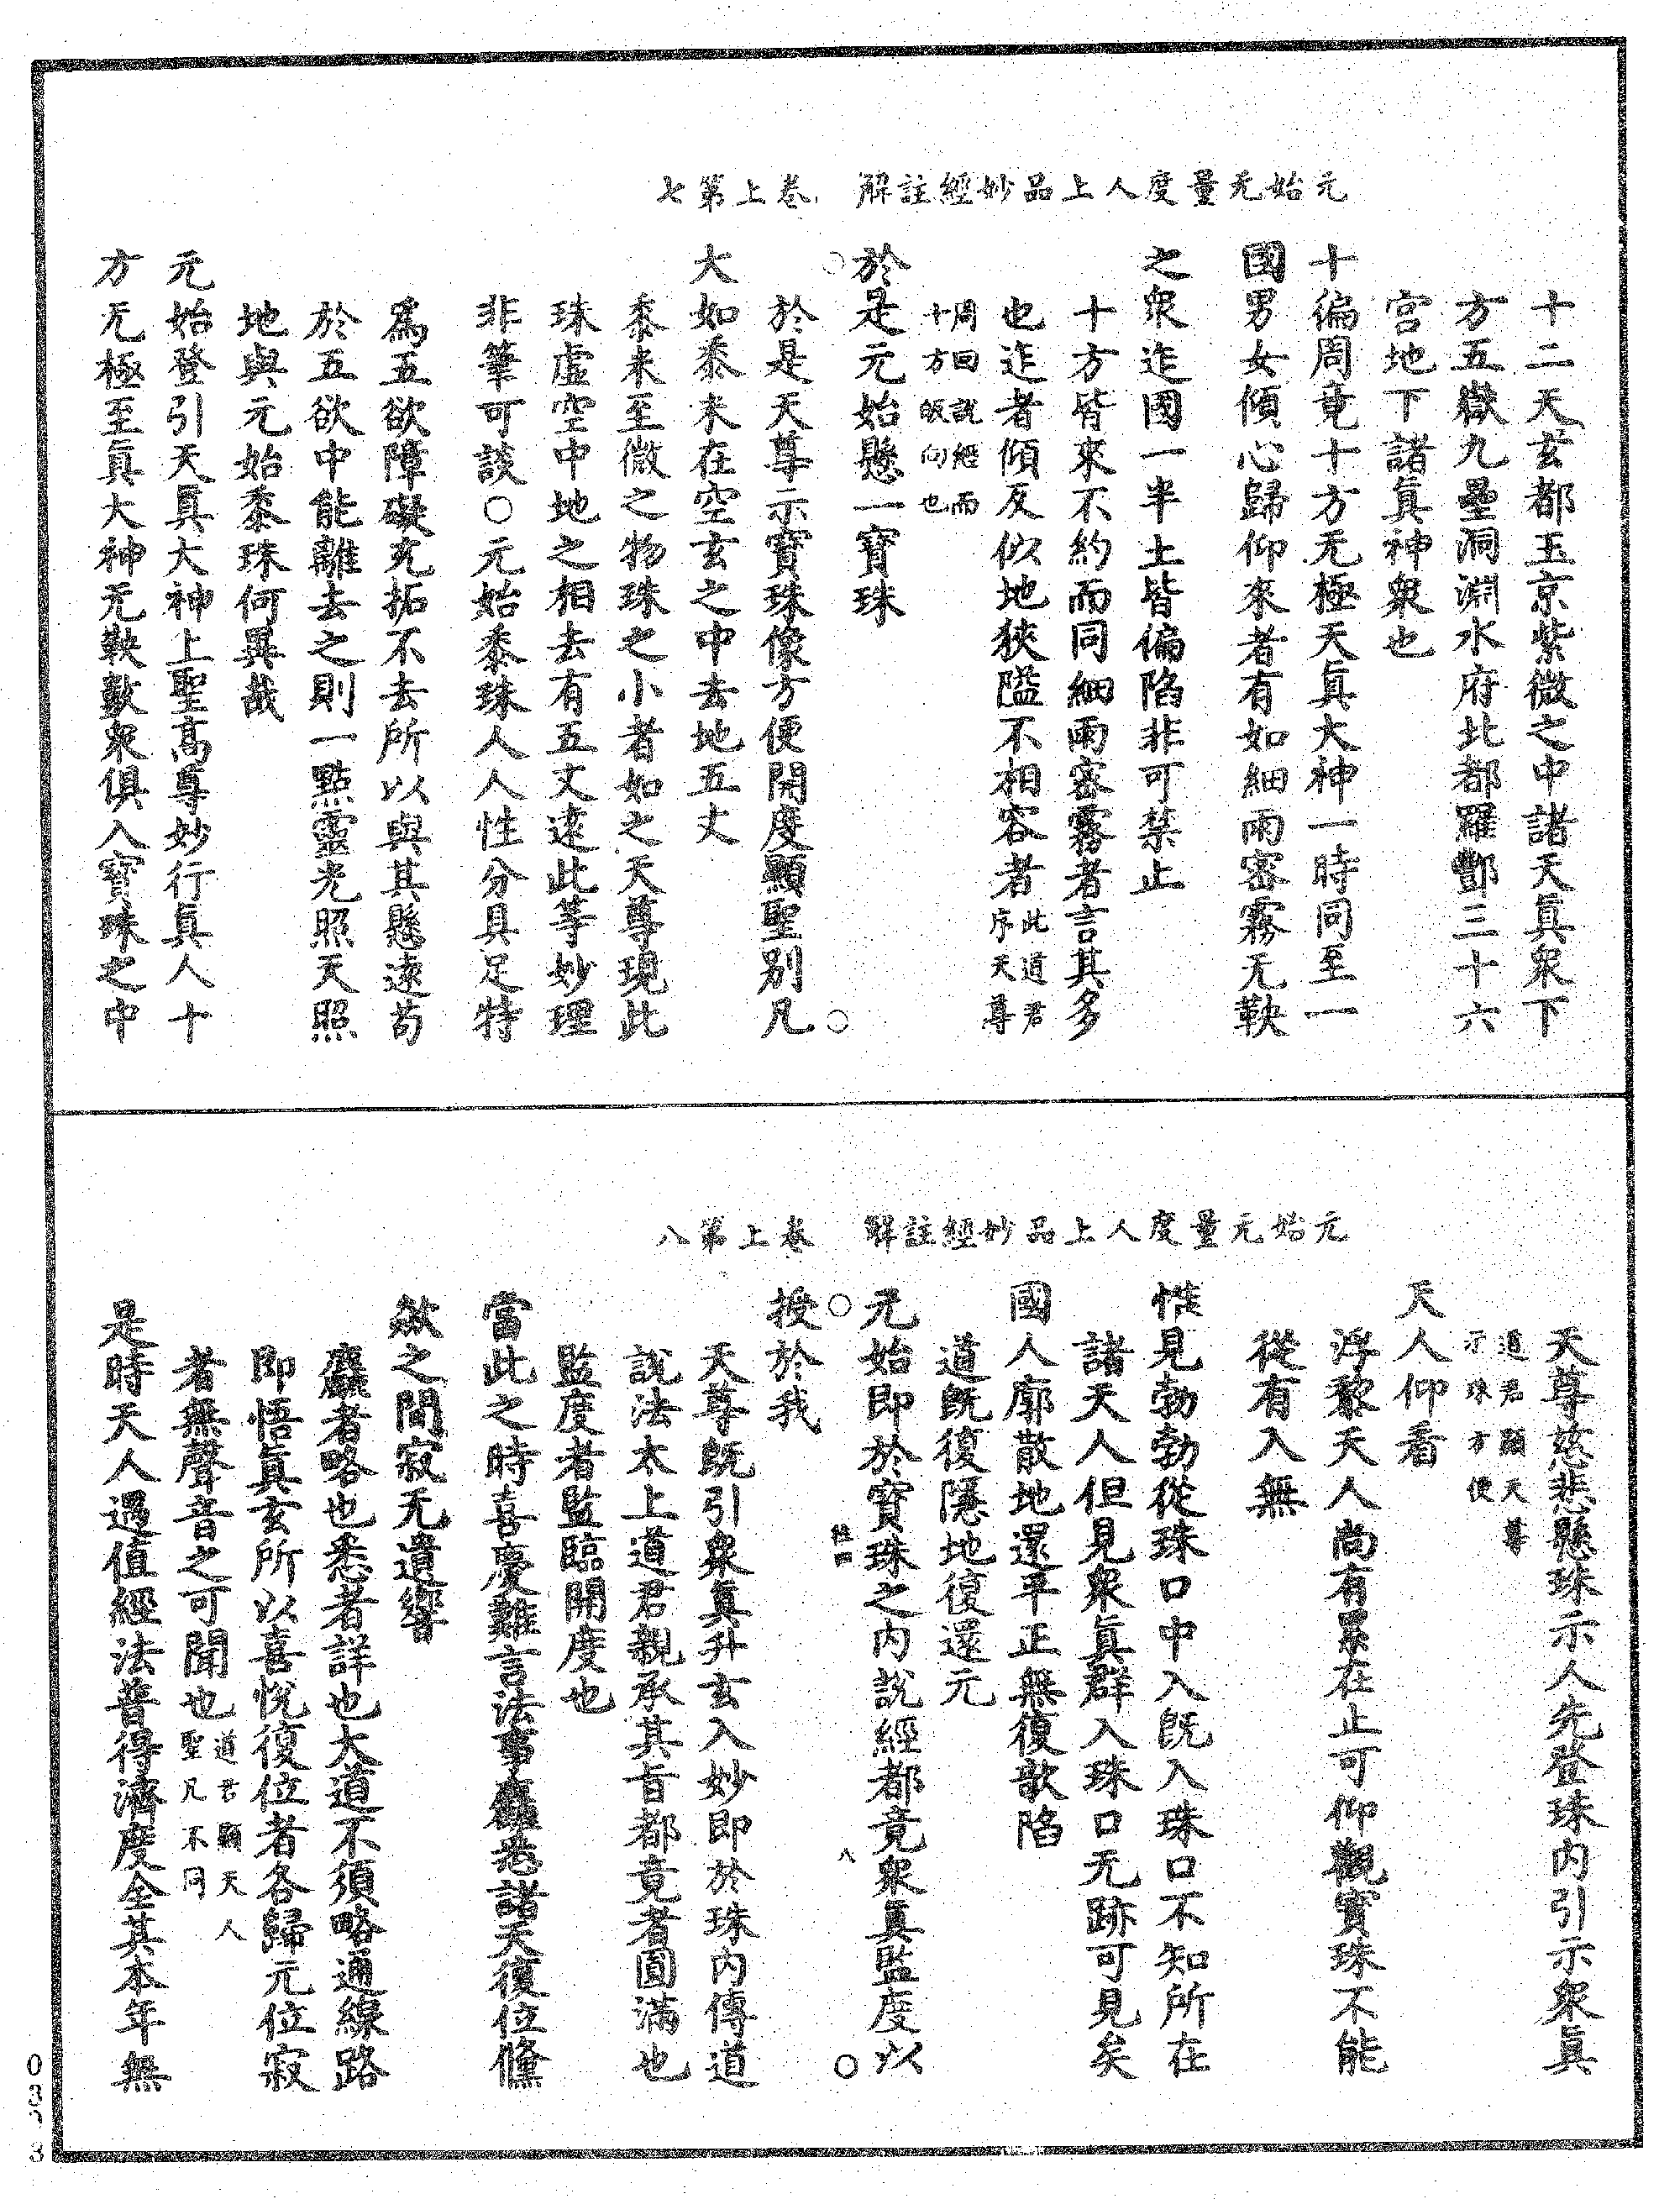 元始无量度人上品妙經註解 卷上第七
十二天玄都玉京紫微之中諸天眞衆下
方五嶽九壘洞淵水府北都羅酆三十六
宫地下諸眞神衆也
十徧周竟十方无極天眞大神一時同至一
國男女傾心歸仰來者有如細雨密霧无鞅
之衆迮國一半土皆偏陷非可禁止
十方皆來不約而同細雨密霧者言其多
也迮者傾反似地狹隘不相容者此道君序天尊
周回說經而十方皈向也
於是元始懸一寶珠
於是天尊示寶珠像方便開度顯聖別凡
大如黍米在空玄之中去地五丈
黍米至微之物珠之小者如之天尊現此
珠虛空中地之相去有五丈遠此等妙理
非筆可談○元始黍珠人人性分具足特
爲五欲障礙充拓不去所以與其懸遠苟
於五欲中能離去之則一點靈光照天照
地與元始黍珠何異哉
元始登引天眞大神上聖高尊妙行眞人十
方无極至眞大神无鞅數衆俱入寶珠之中
元始无量度人上品妙經註解 卷上第八
天尊慈悲懸珠示人先登珠內引示衆眞
道君顯天尊示珠方便
天人仰看
浮黎天人尚有累在止可仰觀寶珠不能
從有入無
惟見勃勃從珠口中入旣入珠口不知所在
諸天人但見衆眞群入珠口无跡可見矣
國人廓散地還平正無復欹陷
道旣復隱地復還元
元始即於寶珠之內說經都竟衆眞監度以
八
授於我
天尊旣引衆眞升玄入妙即於珠內傳道
說法太上道君親承其旨都竟者圓滿也
監度者監臨開度也
當此之時喜慶難言法事麤悉諸天復位儵
欻之間寂无遺響
麤者略也悉者詳也大道不須略通線路
即悟眞玄所以喜悅復位者各歸元位寂
者無聲音之可聞也道君顯天人聖凡不同
是時天人遇值經法普得濟度全其本年無